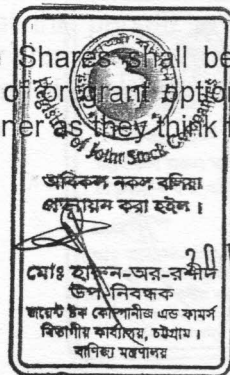 Shares shall be
of or grant option
ner as they think f
Registrar of Joint Stock Companies
অবিকল নকল বলিয়া
প্রত্যয়ন করা হইল।
মোঃ হারুন-অর-রশীদ
উপ-নিবন্ধক
জয়েন্ট ষ্টক কোম্পানীজ এন্ড ফার্মস
বিভাগীয় কার্যালয়, চট্টগ্রাম।
বাণিজ্য মন্ত্রণালয়